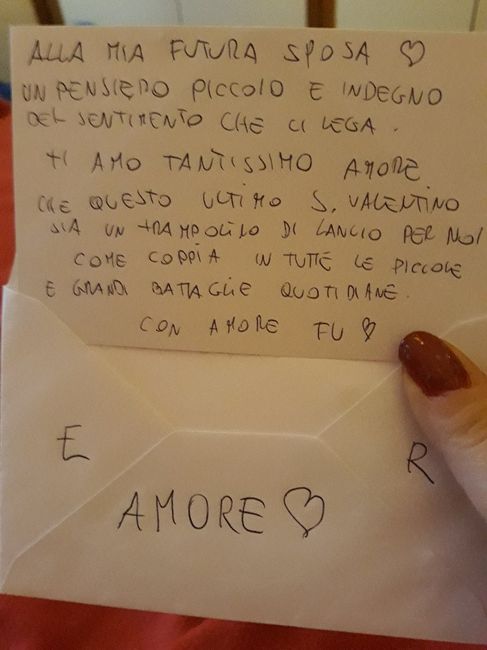 ALLA MIA FUTURA SPOSA ♡
UN PENSIERO PICCOLO E INDEGNO
DEL SENTIMENTO CHE CI LEGA.
TI AMO TANTISSIMO AMORE
CHE QUESTO ULTIMO S. VALENTINO
SIA UN TRAMPOLINO DI LANCIO PER NOI
COME COPPIA IN TUTTE LE PICCOLE
E GRANDI BATTAGLIE QUOTIDIANE.
CON AMORE FU ♡
E R
AMORE ♡